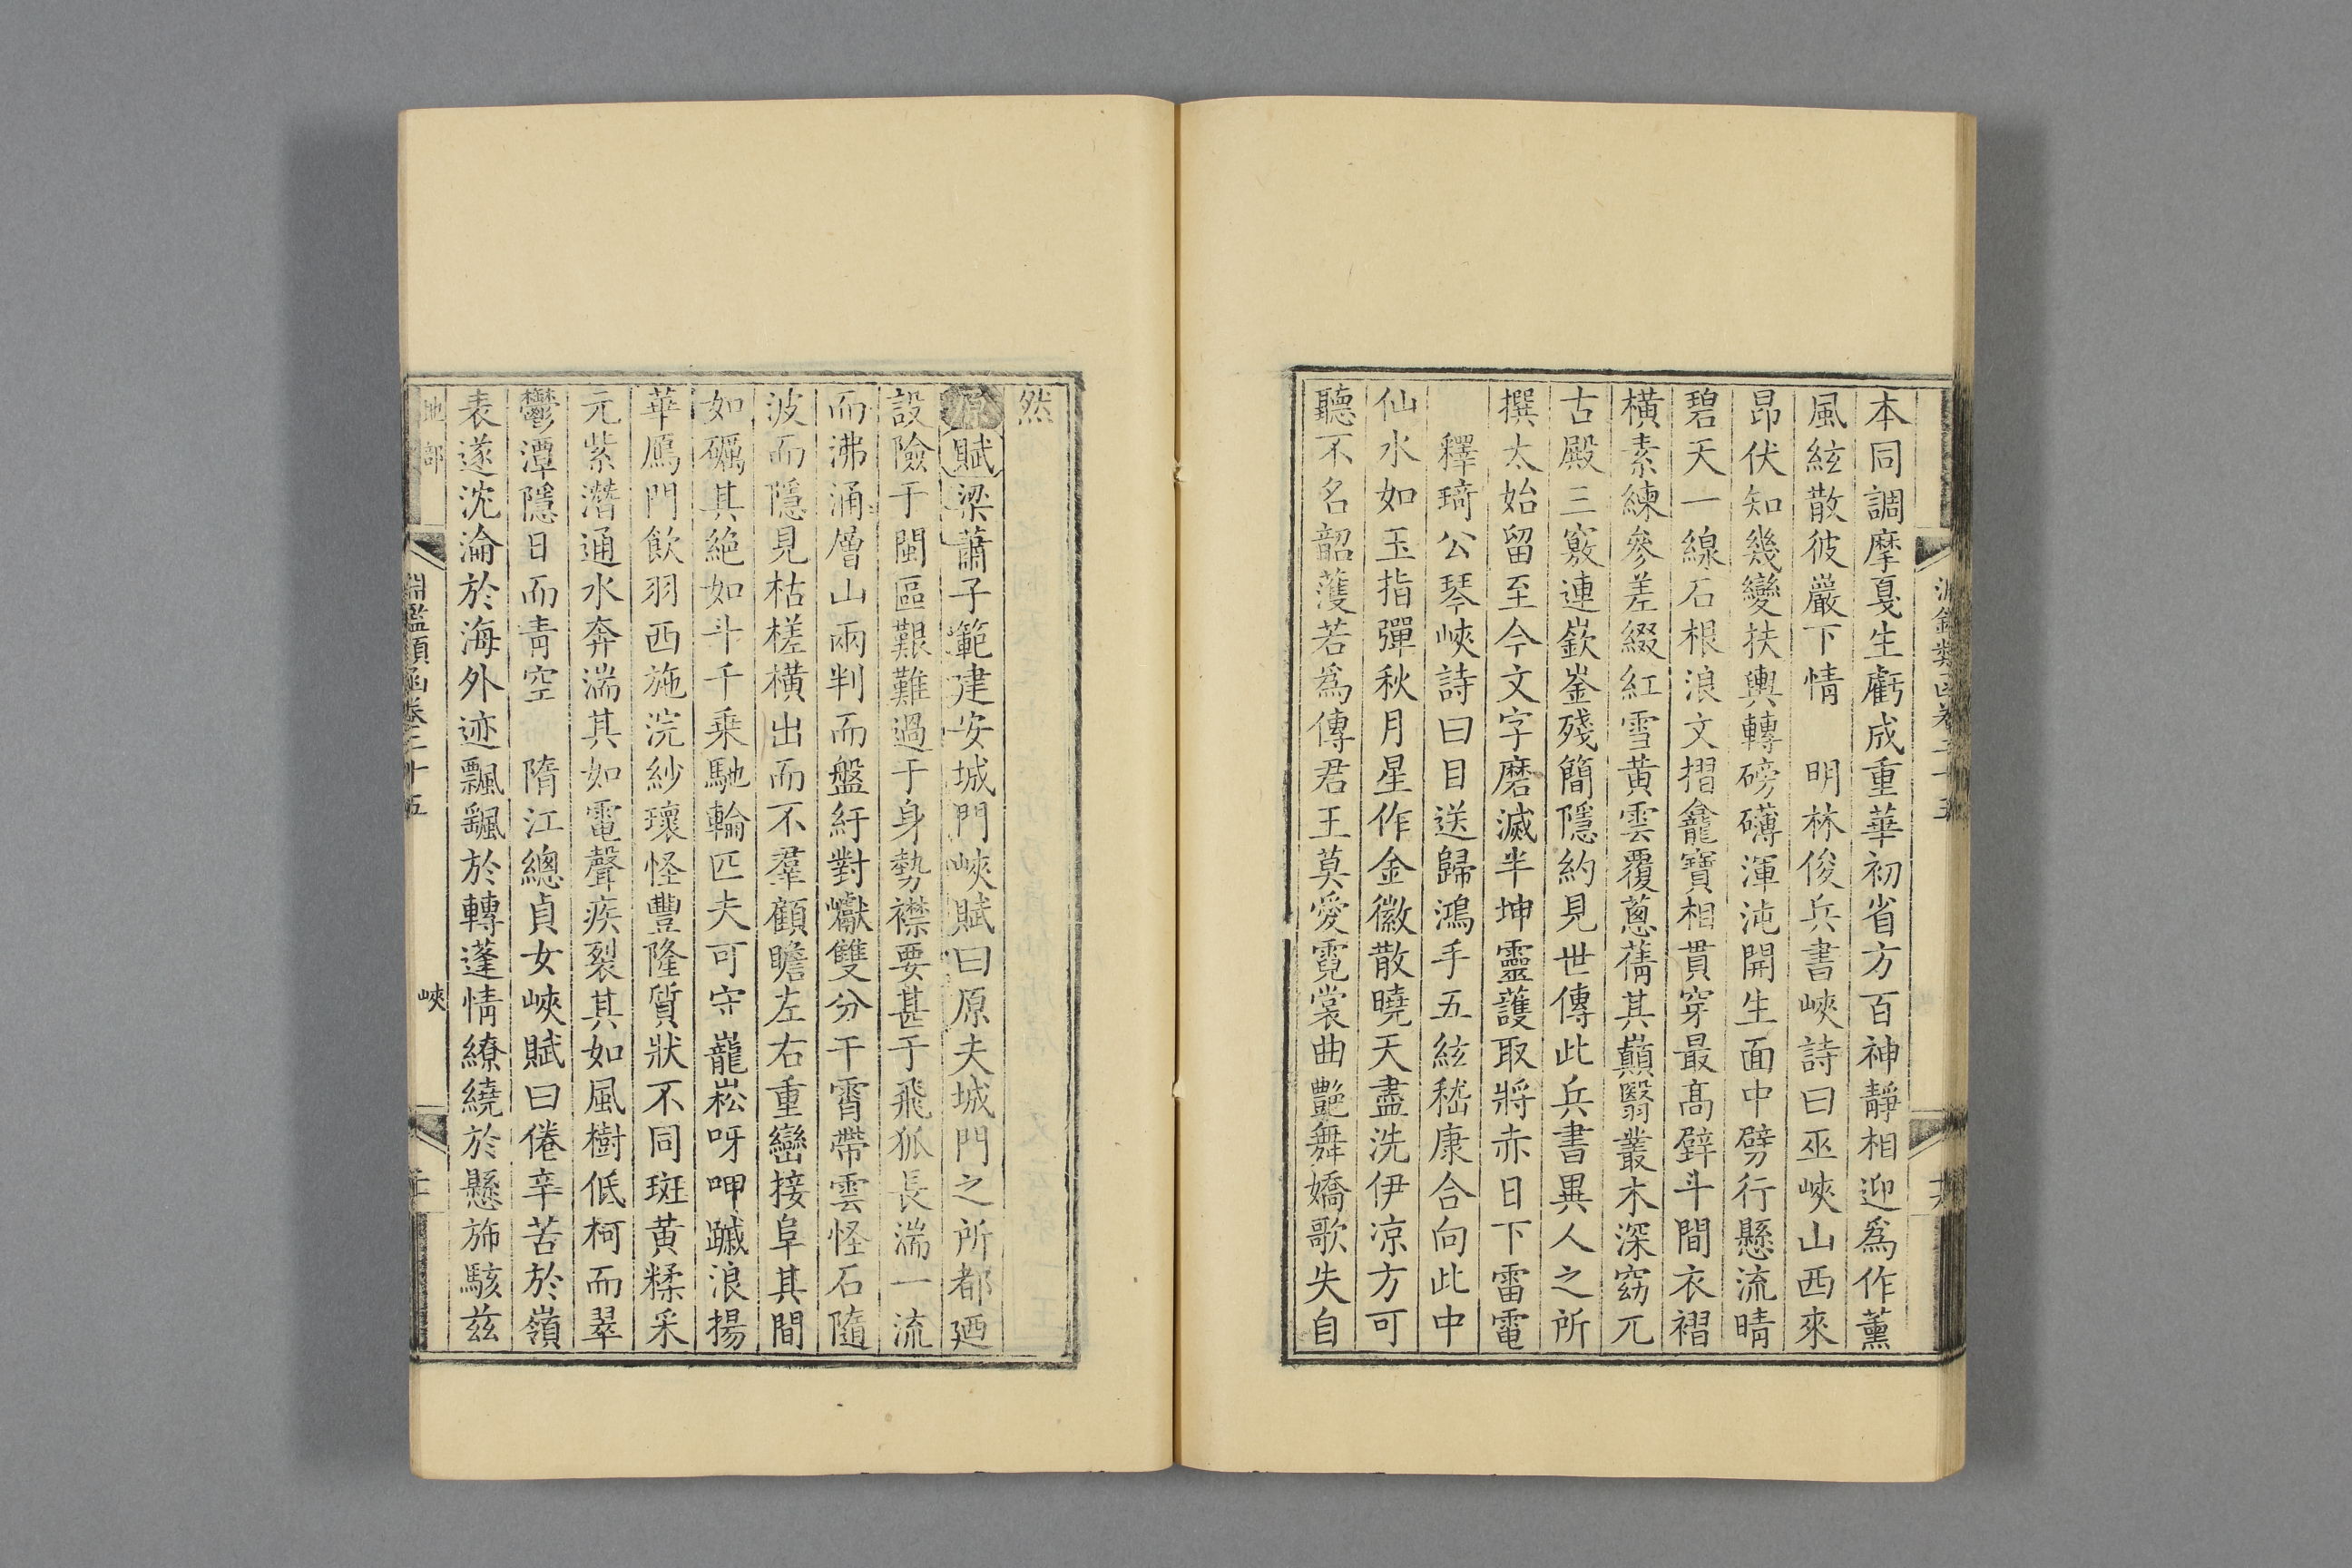 本同調摩戛生虧成重華初省方百神靜相迎爲作薰
風絃散彼巖下情　明林俊兵書峽詩曰巫峽山西來
昂伏知幾變扶輿轉磅礴渾沌開生面中劈行懸流晴
碧天一線石根浪文摺龕寶相貫穿最髙壁斗間衣褶
橫素練參差綴紅雪黃雲覆蔥蒨其巔翳叢木深窈兀
古殿三竅連嶔崟殘簡隱約見世傳此兵書異人之所
撰太始留至今文字磨滅半坤靈護取將赤日下雷電
釋琦公琴峽詩曰目送歸鴻手五絃嵇康合向此中
仙水如玉指彈秋月星作金徽散曉天盡洗伊涼方可
聽不名韶濩若爲傳君王莫愛霓裳曲艷舞嬌歌失自
然
原賦梁蕭子範建安城門峽賦曰原夫城門之所都廼
設險于閩區艱難過于身勢襟要甚于飛狐長湍一流
而沸涌層山兩判而盤紆對巘雙分干霄帶雲怪石隨
波而隱見枯槎橫出而不羣顧瞻左右重巒接阜其間
如礪其絶如斗千乗馳輪匹夫可守巃嵸呀呷蹴浪揚
華鴈門飲羽西施浣紗瓌怪豐隆質狀不同斑黃糅采
元紫潛通水奔湍其如電聲疾裂其如風樹低柯而翠
鬱潭隱日而青空　隋江總貞女峽賦曰倦辛苦於嶺
表遂沈淪於海外迹飄颻於轉蓬情繚繞於懸旆駭茲
地部
淵鑑類函卷三十五
峽